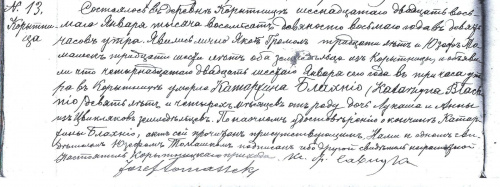 N. 13.
Корытни
ца
Состоялось въ деревнѣ Корытницѣ шеснадцатаго двадцать вось-
маго Января тысяча восемьсотъ девяносто восьмаго года въ девять
часовъ утра. Явились лично Яковъ тридцати лѣтъ и Юзефъ То-
машекъ тридцати шести лѣтъ оба земледѣльцы изъ Корытницы, и объяви-
ли что четырнадцатаго двадцать шестаго Января сего года въ три часа ут-
ра въ Корытницѣ умерла Катаржина Бляхніо (Katarzyna Blach
nio) девять лѣтъ и четырехъ мѣсяцевъ отъ роду дочь Лукаша и Анны
изъ земледѣльцевъ. По настоящемъ удостовѣреніи о кончинѣ Катар-
жины Бляхніо, актъ сей прочитанъ присутствующимъ Нами и однимъ сви-
дѣтелемъ Юзефомъ Томашкомъ подписанъ ибо другой свидѣтель неграмотный
Настоятель Корытницкаго прихода
Józef Tomaszek